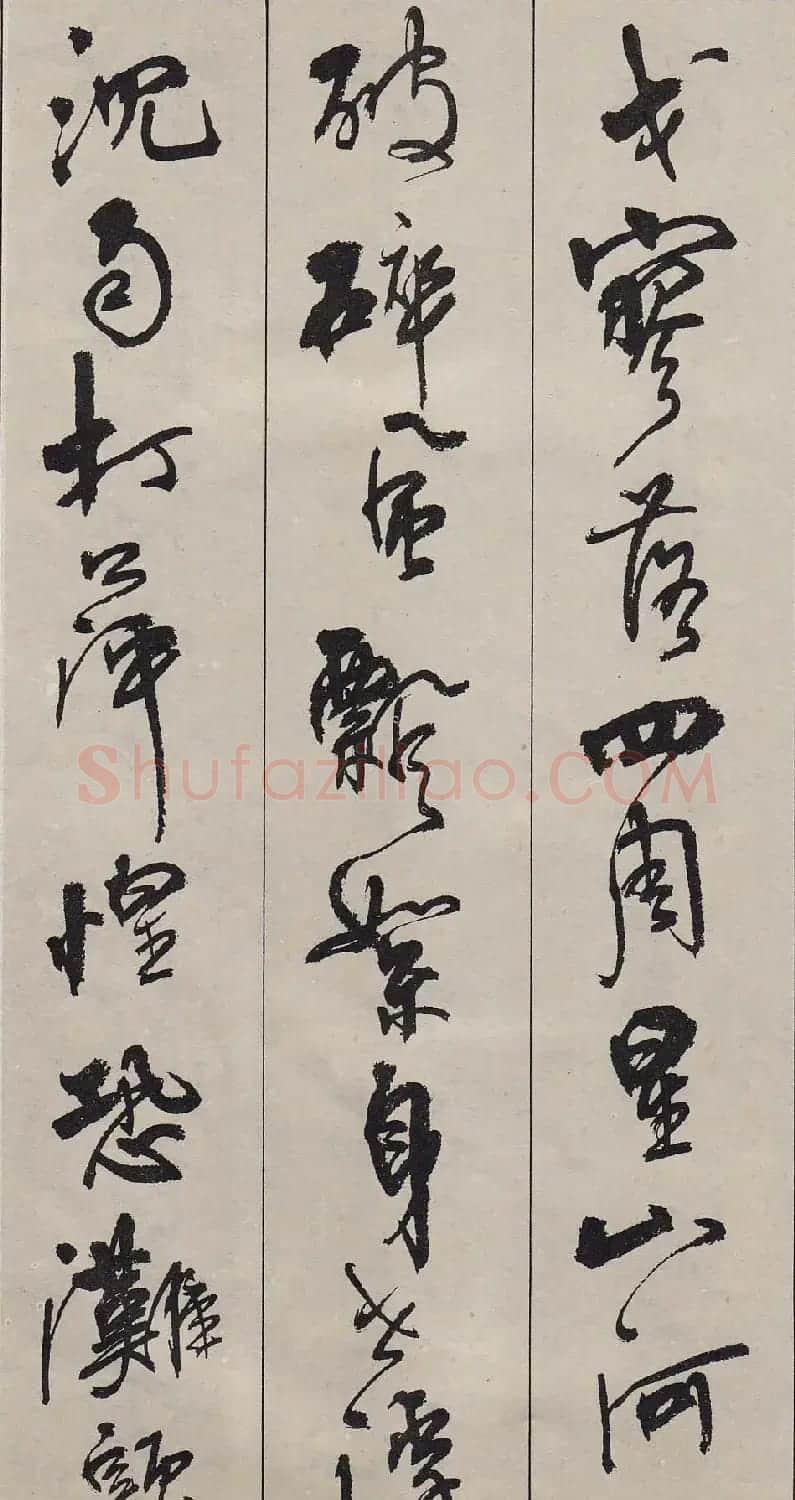 戈寥落四周星山河
破碎風飄絮身世浮
沉雨打萍惶恐灘頭
Shufaziliao.COM